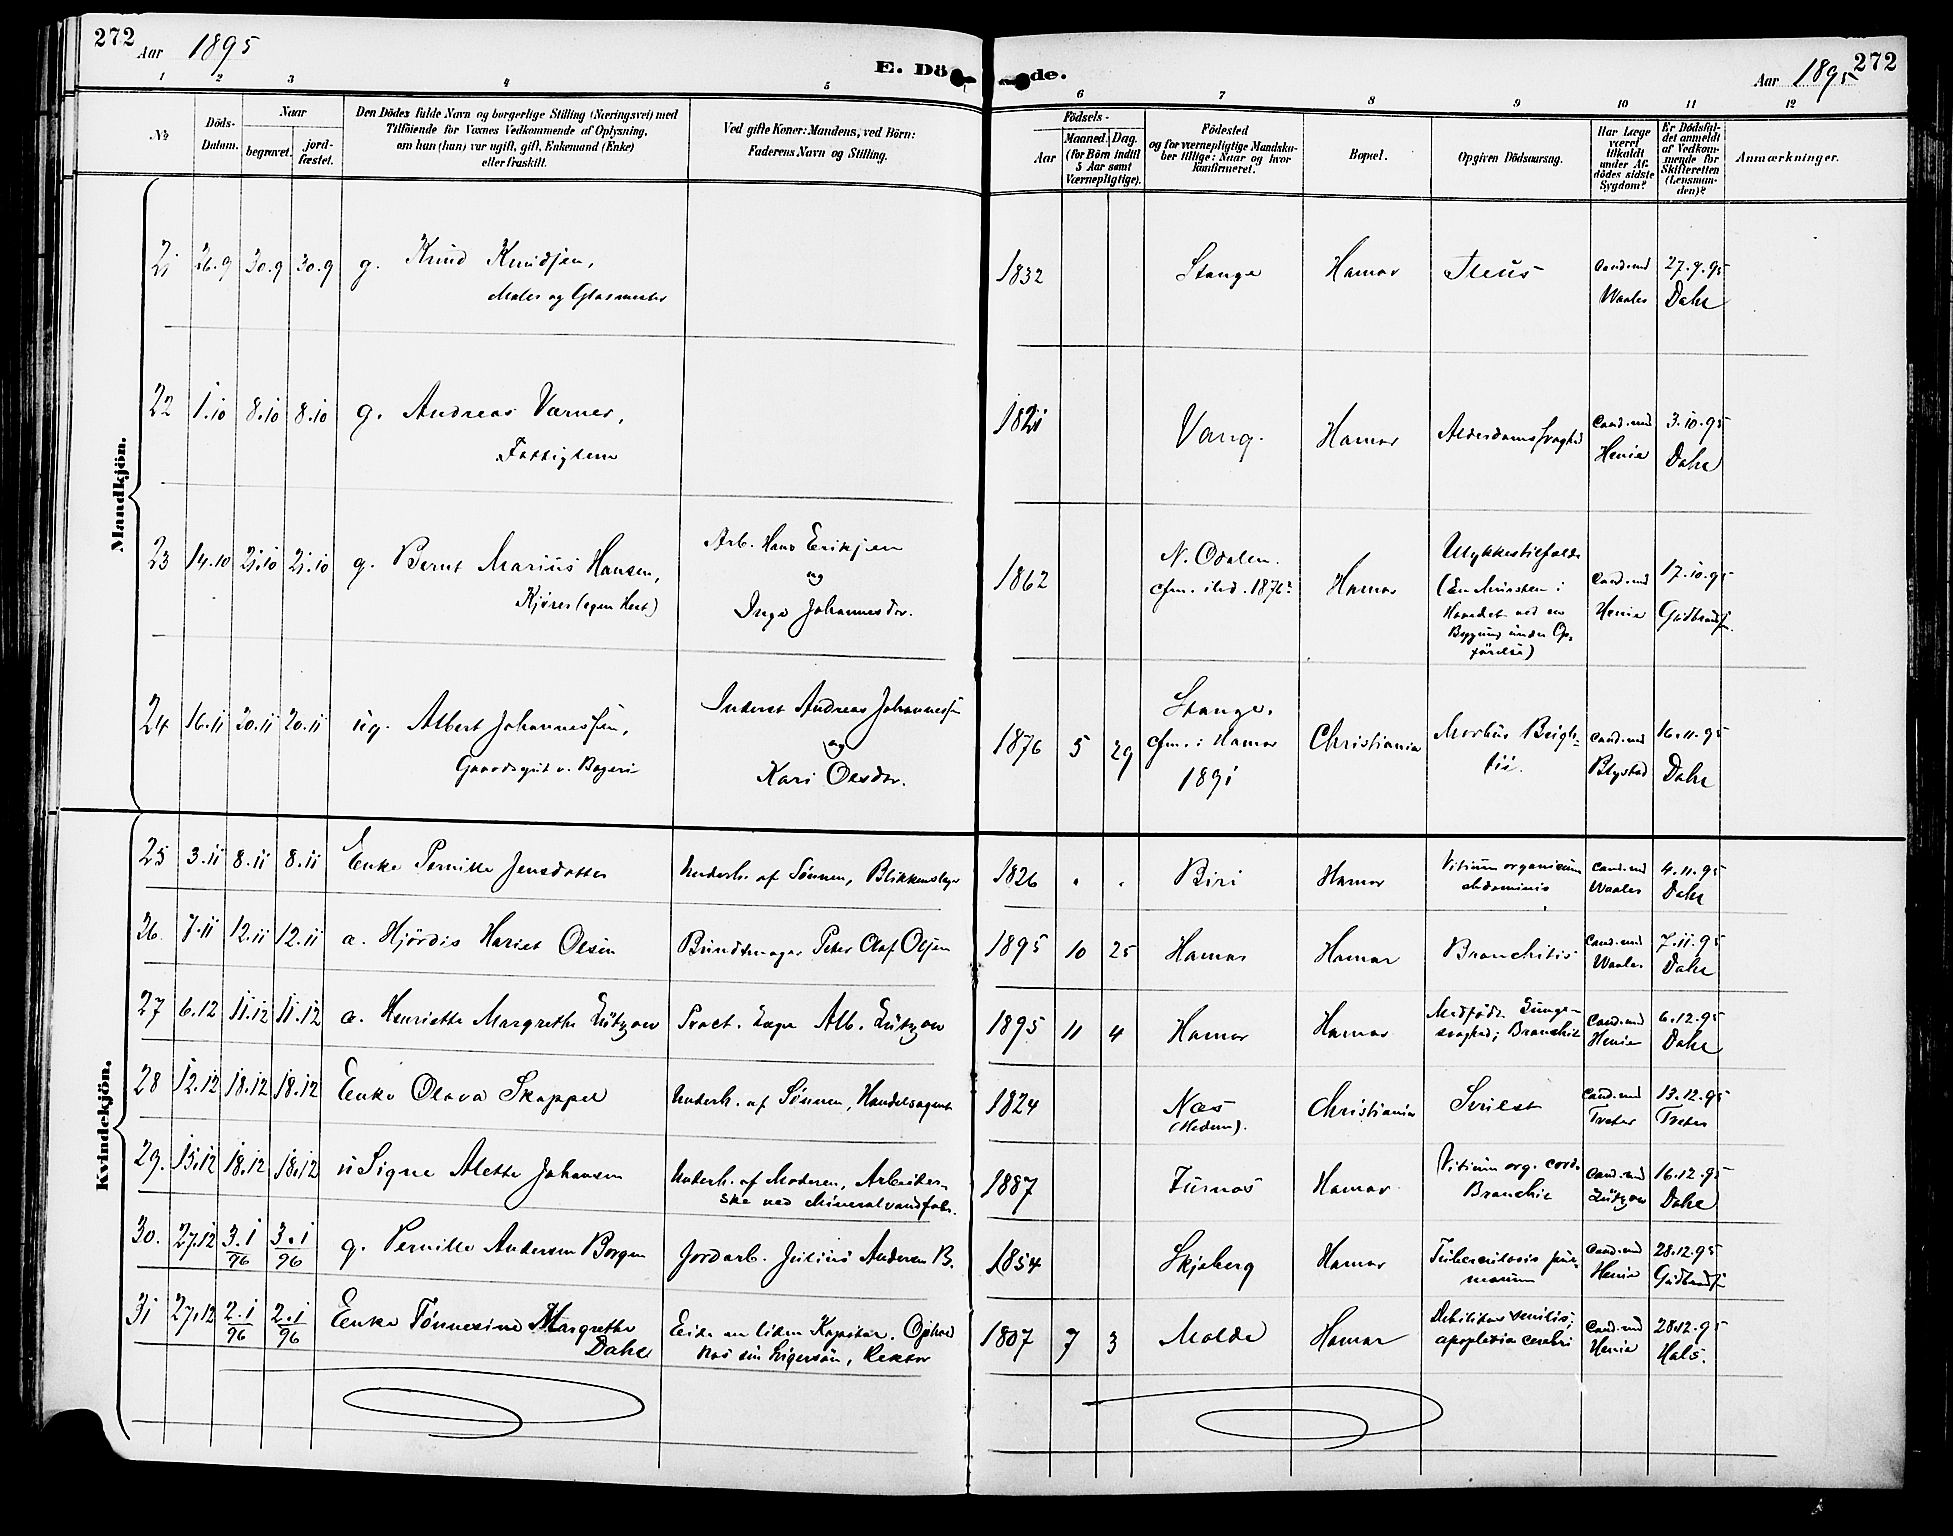 272
Aar 1895
E. Dö
de.
Aar 1895
272
1 2 3 4 5 6 7 8 9 10 11 12
No
Döds-
Datum.
Naar
begravet.
jord-
fæstet.
Den Dödes fulde Navn og borgerlige Stilling (Næringsvei) med
Tilföiende for Voxnes Vedkommende af Oplysning,
om han (hun) var ugift, gift, Enkemand (Enke)
eller fraskilt.
Ved gifte Koner: Mandens, ved Börn:
Faderens Navn og Stilling.
Födsels-
Aar
Maaned. Dag.
(for Börn indtil
5 Aar samt
Værnepligtige).
Födested
og for værnepligtige Mandska-
ber tillige: Naar og hvor
konfirmeret.
Bopæl.
Opgiven Dödsaarsag.
Har Læge
været
tilkaldt
under Af-
dödes sidste
Sygdom?
Er Dödsfal-
det anmeldt
af Vedkom-
mende for
Skifteretten
(Lensman-
den)?
Anmærkninger.
Mandkjön.
21 26.9 30.9 30.9 g. Knud Knudsen,
Maler og Glasmester
1832 Stange Hamar Ileus Cand.med Waaler 27.9.95 Dahl
22 1.10 8.10 8.10 g. Andreas Værner,
Fattiglem
1821 Vang. Hamar Alderdomssvaghed Cand.med Henie 3.10.95 Dahl
23 14.10 21.10 21.10 g. Bernt Marius Hansen,
Kjører (egen Hest)
Arb. Hans Eriksen
og
Inge Johannesdr.
1862 N. Odalen.
cfm. ibd. 1876?
Hamar
Ulykkestilfælde
(En Mursten i
Hovedet ved en
Bygning under Op-
førelse)
Cand.med Henie 17.10.95 Gudbrands.
24 16.11 20.11 20.11 ug. Albert Johannessen,
Gaardsgut v. Bageri
Inderst Andreas Johannessen
og
Kari Olsdr.
1876 5 29 Stange.
cfm. i Hamar
1891
Christiania
Morbus Brigh-
tii.
Cand.med Blystad 16.11.95 Dahl
Kvindekjön.
25 3.11 8.11 8.11 Enke Pernille Jensdatter Underh. af Sønnen, Blikkenslager 1826 " " Biri Hamar Vitium organicum
abdominis
Cand.med Waaler 4.11.95 Dahl
26. 7.11 12.11 12.11 a. Hjørdis Hariet Olsen Bundtmager Peter Olaf Olsen 1895 10 25 Hamar Hamar Bronchitis Cand.med Waaler 7.11.95 Dahl
27 6.12 11.12 11.12 a. Henriette Margrethe Lützow Pract. Læge Alb. Lützow 1895 11 4 Hamar Hamar Medfødt Lunge-
svaghed; Bronchit
Cand.med Henie 6.12.95 Dahl
28 12.12 18.12 18.12 Enke Olava Skappel Underh. af Sønnen, Handelsagent 1824 Næs
(Hedem).
Christiania Cand.med Tveter 13.12.95 Tveter
29. 15.12 18.12 18.12 u Signe Alette Johansen Underh. af Moderen, Arbeider-
ske ved Mineralvandfabr.
1887 Furnæs Hamar Vitium org. cord.
Bronchit
Cand.med Lützow 16.12.95 Dahl
30. 27.12 3.1/96 3.1/96 g. Pernille Andersen Borgen Jordarb. Julius Andersen B. 1854 Skjeberg Hamar Tuberculosis pul-
monum
Cand.med Henie 28.12.95 Gudbrands.
31 27.12 2.1/96 2.1/96 Enke Tønnesine Margrethe
Dahl
Eide en liden Kapital. Ophold
hos sin Svigersøn, Rektor
1807 7 3 Molde Hamar Debilitas senilis;
apoplexia cerebri
Cand.med Henie 28.12.95 Hals.